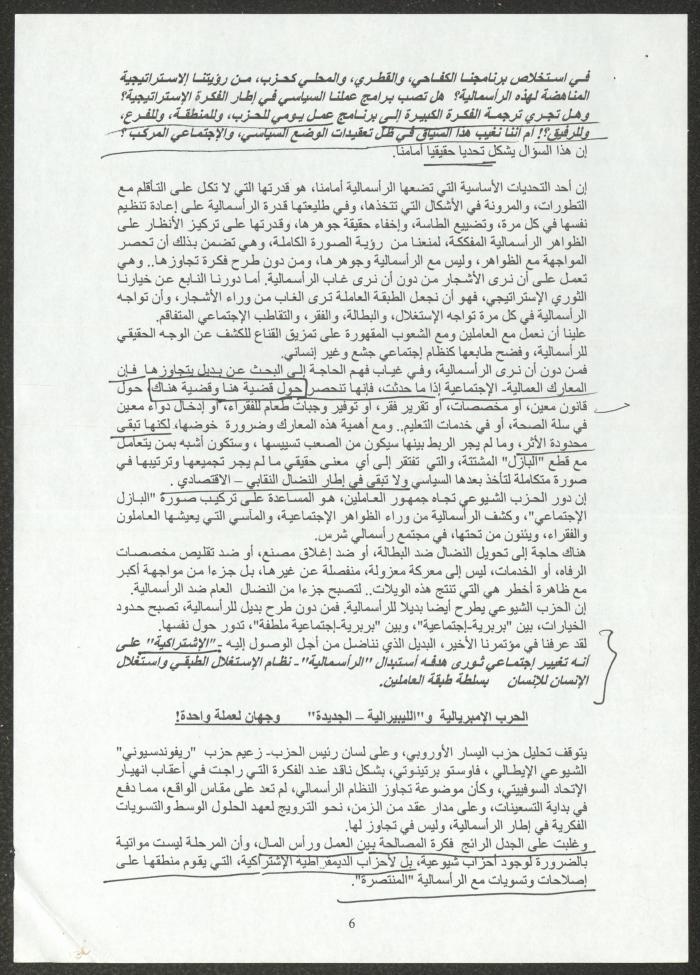 في استخلاص برنامجنا الكفاحي، والقطري، والمحلي كحزب، من رؤيتنا الإستراتيجية
المناهضة لهذه الرأسمالية؟ هل تصب برامج عملنا السياسي في إطار الفكرة الإستراتيجية؟
وهل تجري ترجمة الفكرة الكبيرة إلى برنامج عمل يومي للحزب، وللمنطقة، وللفرع،
وللرفيق؟! أم أننا نغيب هذا السياق في ظل تعقيدات الوضع السياسي، والإجتماعي المركب؟
إن هذا السؤال يشكل تحديا حقيقيا أمامنا.
إن أحد التحديات الأساسية التي تضعها الرأسمالية أمامنا، هو قدرتها التي لا تكل على التأقلم مع
التطورات، والمرونة في الأشكال التي تتخذها، وفي طليعتها قدرة الرأسمالية على إعادة تنظيم
نفسها في كل مرة، وتضييع الطاسة، وإخفاء حقيقة جوهرها، وقدرتها على تركيز الأنظار على
الظواهر الرأسمالية المفككة، لمنعنا من رؤية الصورة الكاملة، وهي تضمن بذلك أن تحصر
المواجهة مع الظواهر، وليس مع الرأسمالية وجوهرها، ومن دون طرح فكرة تجاوزها.. وهي
تعمل على أن نرى الأشجار من دون أن نرى غاب الرأسمالية. أما دورنا النابع عن خيارنا
الثوري الإستراتيجي، فهو أن نجعل الطبقة العاملة ترى الغاب من وراء الأشجار، وأن تواجه
الرأسمالية في كل مرة تواجه الإستغلال، والبطالة، والفقر، والتقاطب الإجتماعي المتفاقم.
علينا أن نعمل مع العاملين ومع الشعوب المقهورة على تمزيق القناع للكشف عن الوجه الحقيقي
للرأسمالية، وفضح طابعها كنظام إجتماعي جشع وغير إنساني.
فمن دون أن نرى الرأسمالية، وفي غياب فهم الحاجة إلى البحث عن بديل يتجاوزها فإن
المعارك العمالية- الإجتماعية إذا ما حدثت، فإنها تنحصر حول قضية هنا وقضية هناك، حول
قانون معين، أو مخصصات، أو تقرير فقر، أو توفير وجبات طعام للفقراء، أو إدخال دواء معين
في سلة الصحة، أو في خدمات التعليم.. ومع أهمية هذه المعارك وضرورة خوضها، لكنها تبقى
محدودة الأثر، وما لم يجر الربط بينها سيكون من الصعب تسييسها ، وستكون أشبه بمن يتعامل
مع قطع "البازل" المشتتة، والتي تفتقر إلى أي معنى حقيقي ما لم يجر تجميعها وترتيبها في
صورة متكاملة لتأخذ بعدها السياسي ولا تبقى في إطار النضال النقابي – الاقتصادي .
إن دور الحزب الشيوعي تجاه جمهور العاملين، هو المساعدة على تركيب صورة "البازل
الإجتماعي"، وكشف الرأسمالية من وراء الظواهر الإجتماعية، والمآسي التي يعيشها العاملون
والفقراء، ويئنون من تحتها، في مجتمع رأسمالي شرس.
هناك حاجة إلى تحويل النضال ضد البطالة، أو ضد إغلاق مصنع، أو ضد تقليص مخصصات
الرفاه، أو الخدمات، ليس إلى معركة معزولة، منفصلة عن غيرها، بل جزءا من مواجهة أكبر
مع ظاهرة أخطر هي التي تنتج هذه الويلات.. لتصبح جزءا من النضال العام ضد الرأسمالية.
إن الحزب الشيوعي يطرح أيضا بديلا للرأسمالية. فمن دون طرح بديل للرأسمالية، تصبح حدود
الخيارات، بين "بربرية-إجتماعية"، وبين "بربرية-إجتماعية ملطفة"، تدور حول نفسها.
لقد عرفنا في مؤتمرنا الأخير، البديل الذي نناضل من أجل الوصول إليه - "الإشتراكية" على
أنه تغيير إجتماعي ثوري هدفه أستبدال "الرأسمالية"- نظام الإستغلال الطبقي واستغلال
الإنسان للإنسان بسلطة طبقة العاملين.
الحرب الإمبريالية و"الليبيرالية – الجديدة" وجهان لعملة واحدة!
يتوقف تحليل حزب اليسار الأوروبي، وعلى لسان رئيس الحزب- زعيم حزب "ريفوندسيوني"
الشيوعي الإيطالي ، فاوستو برتينوتي، بشكل ناقد عند الفكرة التي راجت في أعقاب انهيار
الإتحاد السوفييتي، وكأن موضوعة تجاوز النظام الرأسمالي، لم تعد على مقاس الواقع، مما دفع
في بداية التسعينات، وعلى مدار عقد من الزمن، نحو الترويج لعهد الحلول الوسط والتسويات
الفكرية في إطار الرأسمالية، وليس في تجاوز لها.
و غلبت على الجدل الرائج فكرة المصالحة بين العمل ورأس المال، وأن المرحلة ليست مواتية
بالضرورة لوجود أحزاب شيوعية، بل لأحزاب الديمقراطية الإشتراكية، التي يقوم منطقها على
إصلاحات وتسويات مع الرأسمالية "المنتصرة".
6